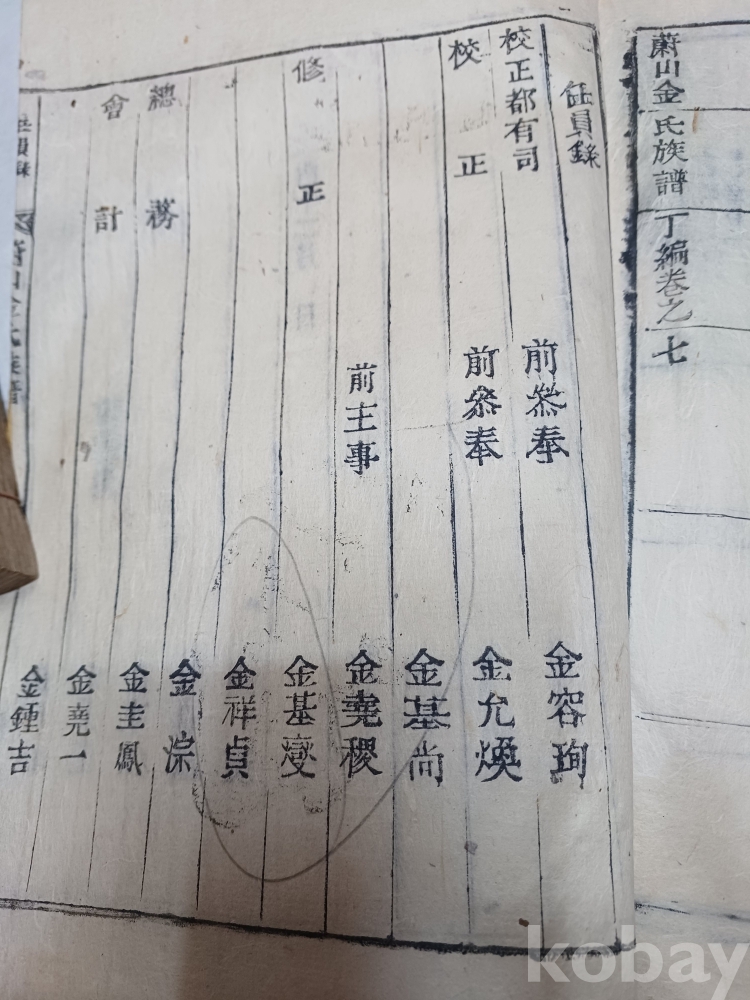 蔚山金氏族譜 丁編卷之七
任員錄
校正都有司 前叅奉 金容珣
校正 前叅奉 金允煥
金基尚
前主事 金堯稷
修正 金基燮
金祥貞
金淙
總務 金圭鳳
會計 金堯一
金鍾吉
kobay